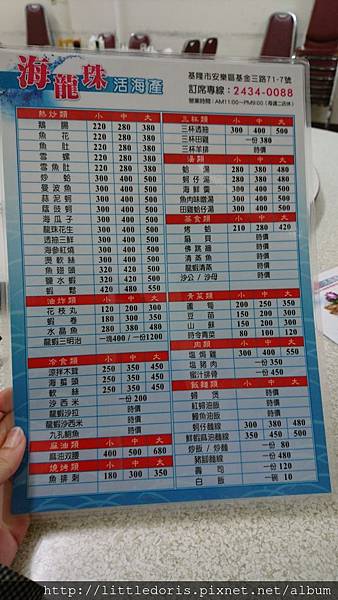 海龍珠 活海產
基隆市安樂區基金三路71-7號
訂席專線：2434-0088
營業時間：AM11:00~PM9:00（每週二店休）
熱炒類 小 中 大
鵝腸 220 280 380
魚花 220 280 380
魚肚 220 280 380
雪螺 220 280 380
雪魚肚 220 280 380
炒蛤 300 400 500
曼波魚 300 400 500
蒜泥蚵 300 400 500
蔭豉蚵 300 400 500
海瓜子 300 400 500
龍珠花生 300 400 500
透抽三鮮 300 400 500
海參紅燒 300 400 500
燙軟絲 300 400 500
魚翅頭 320 420 520
鹽水蝦 320 420 520
蝦鬆 420 480 550
油炸類 小 中 大
花枝丸 120 200 300
蝦卷 180 300 350
水晶魚 280 380 480
龍蝦三明治 一塊400 / 一份1200
冷食類 小 中 大
涼拌木茸 250 350 450
海蜇頭 250 350 450
軟絲 250 350 450
沙西米 一份 200
龍蝦沙拉 時價
龍蝦沙西米 時價
九孔鮑魚 時價
麻油類 小 中 大
麻油双腰 400 500 680
燒烤類 小 中 大
魚排刺 180 300 350
三杯類 小 中 大
三杯透抽 300 400 500
三杯田雞 一份 380
三杯羊排 時價
湯類 小 中 大
蛤湯 280 380 480
蚵仔湯 280 380 480
海鮮羹 300 400 500
魚肉味噌湯 300 400 500
田雞蛤仔湯 300 400 500
蒸食類 小 中 大
烤蛤 210 280 420
扇貝 時價
佛跳牆 時價
清蒸魚 時價
龍蝦清蒸 時價
沙公 / 沙母 時價
青菜類 小 中 大
200 250 350
豆苗 150 200 300
山蘇 150 200 300
時令青菜 80 100 120
肉類 小 中 大
塩焗雞 300 400 550
塩豬肉 一份 350
蜜汁排骨 一份 450
飯麵類 小 中 大
蚵煲 時價
紅蟳油飯 時價
鰻魚油飯 時價
蚵仔麵線 300 380 480
鮮蝦麻油麵線 350 450 500
炒飯 / 炒麵 一份 80
豬腳麵線 一份 480
壽司 一份 120
白飯 一碗 10
http://littledoris.pixnet.net/album